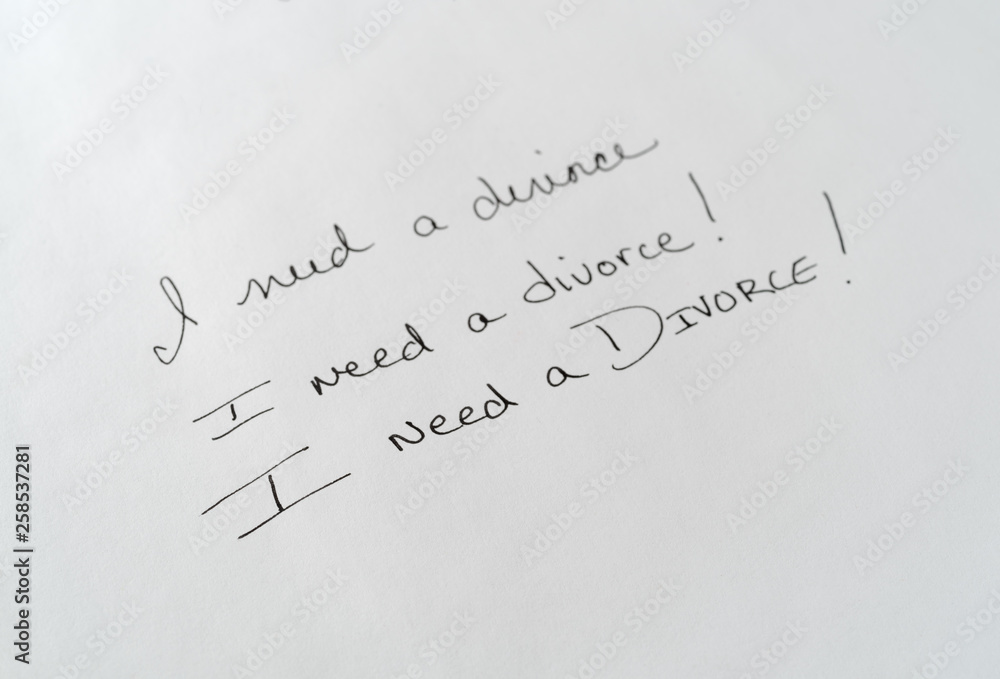 I need a divorce
I need a divorce!
I Need a DIVORCE!
Adobe Stock | #258537281